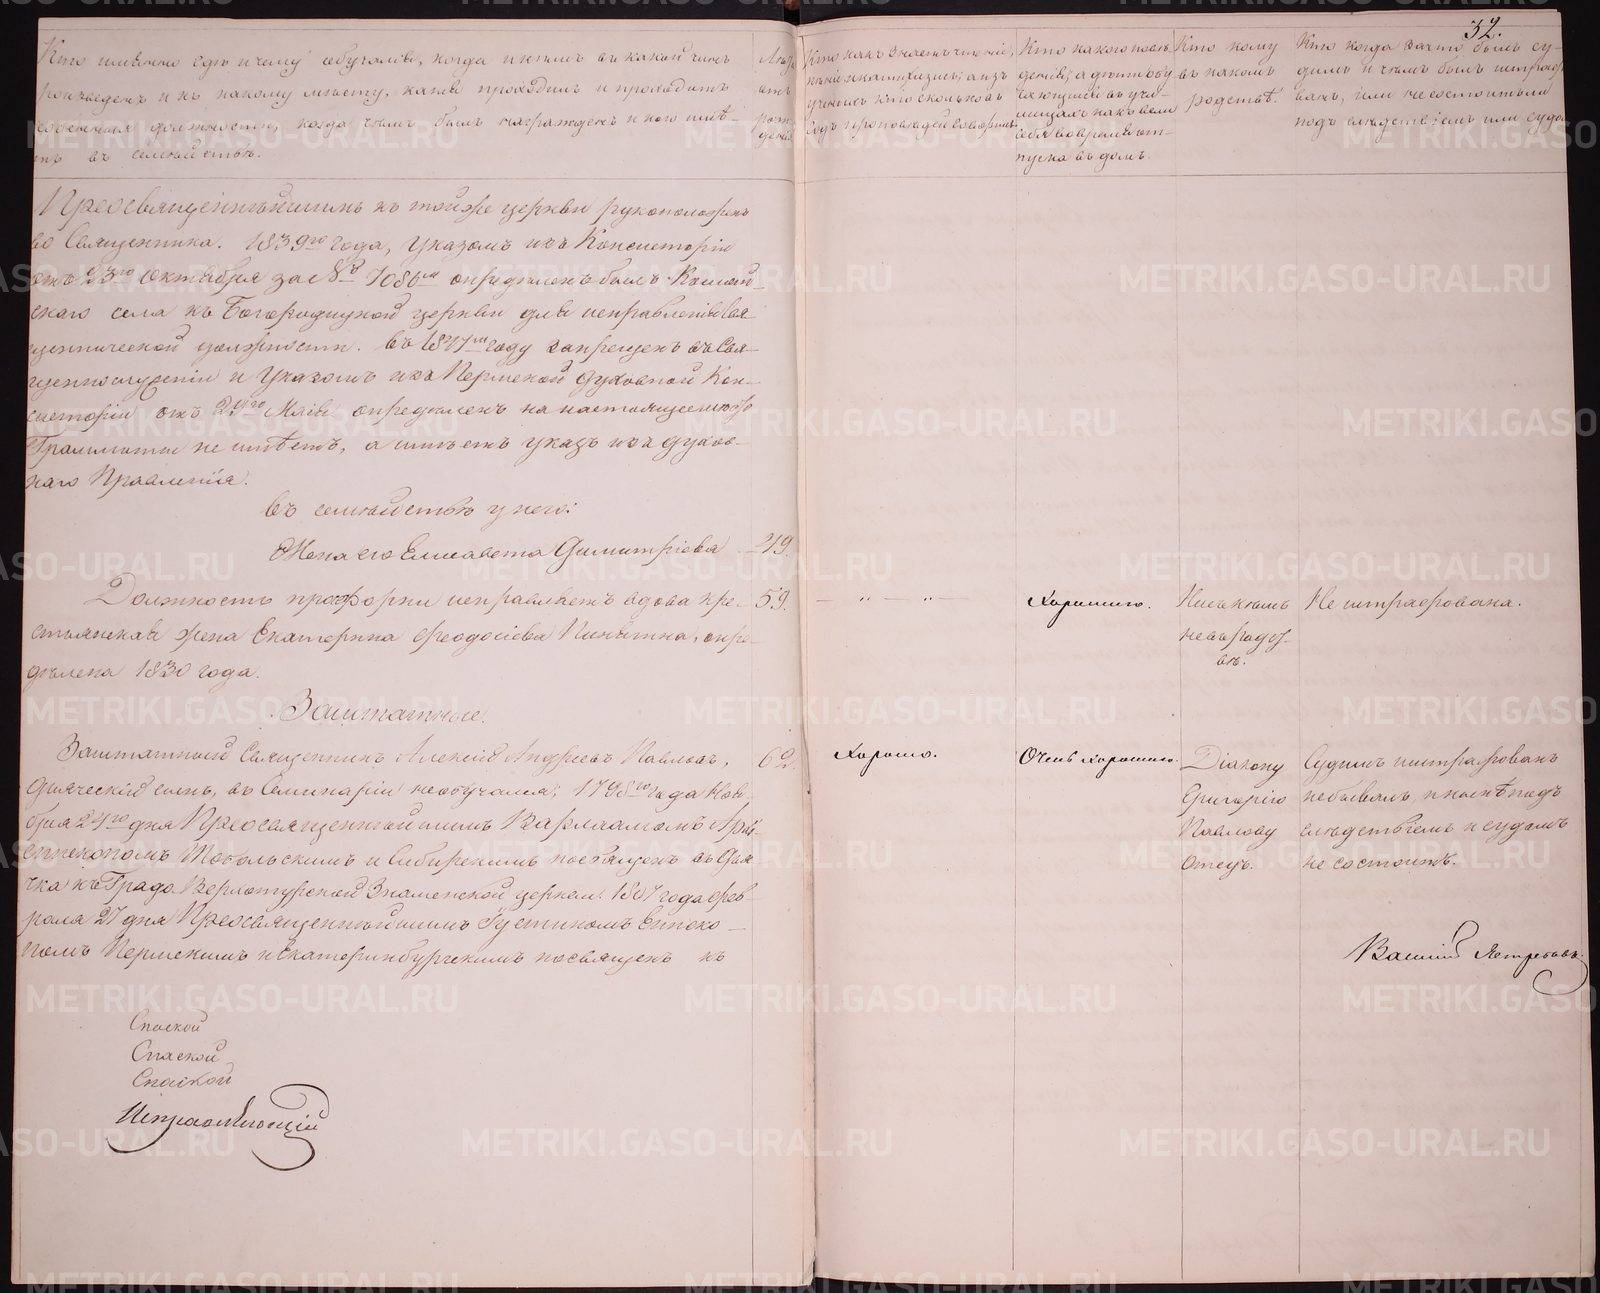 32.
Кто именно, гдѣ и чему обучался, когда и кѣмъ въ какой чинъ
произведенъ и къ какому мѣсту, какія проходилъ и проходитъ
особенныя должности, когда чѣмъ былъ награжденъ и кого имѣ-
тъ въ семействѣ.
Лѣта
отъ
рож-
денія
Кто какъ знаетъ чтеніе,
пѣніе и катихизисъ; а изъ
ученыхъ кто сколько въ
годъ проповѣдей говорилъ.
Кто какого пове-
денія; а дѣти обу-
чающіяся въ учи-
лищахъ какъ вели
себя во время от-
пуска въ домъ.
Кто кому
въ какомъ
родствѣ.
Кто когда за что былъ су-
димъ и чѣмъ былъ штрафо-
ванъ, или не состоитъ ли
подъ слѣдствіемъ или судо
Преосвященнѣйшимъ къ той же церкви рукоположенъ
во Священника. 1839го года, указомъ изъ Консисторіи
отъ 23го Октября за № 7086м опредѣленъ былъ
скаго села къ Богородицкой церкви для исправленія Свя-
щеннической должности. въ 1847м году запрещенъ въ Свя-
щеннослуженіи и Указомъ изъ Пермской Духовной Кон-
систоріи отъ Маія опредѣленъ на настоящее мѣсто
Грамматы не имѣетъ, а имѣетъ указъ изъ духов-
наго Правленія.
въ семействѣ у него:
Жена его Елисавета Димитріева 49.
Должность просфорни исправляетъ вдова кре-
стьянская жена Екатерина Феодосіева опре-
дѣлена 1830 года.
59.
— „ — „ —
Хорошаго.
Ни съ кѣмъ
не въ родст-
вѣ.
Не штрафована.
Заштатные.
Заштатный Священникъ Алексій Андреевъ Павловъ,
дьяческій сынъ, въ Семинаріи не обучался; 1798го года Ноя-
бря 24го дня Преосвященнѣйшимъ Варлаамомъ Архі-
епископомъ Тобольскимъ и Сибирскимъ посвященъ въ Дья-
чка къ Градо Верхотурской Знаменской церкви. 1807 года Фев-
рала 27 дня Преосвященнѣйшимъ Іустиномъ Еписко-
помъ Пермскимъ и Екатеринбургскимъ посвященъ къ
62.
Хорошо.
Очень хорошаго.
Діакону
Григорію
Павлову
отецъ.
Судимъ и штрафованъ
не бывалъ, и нынѣ подъ
слѣдствіемъ и судомъ
не состоитъ.
Спаской
Спаской
Спаской
Исправляющій
Василій Ястребовъ.